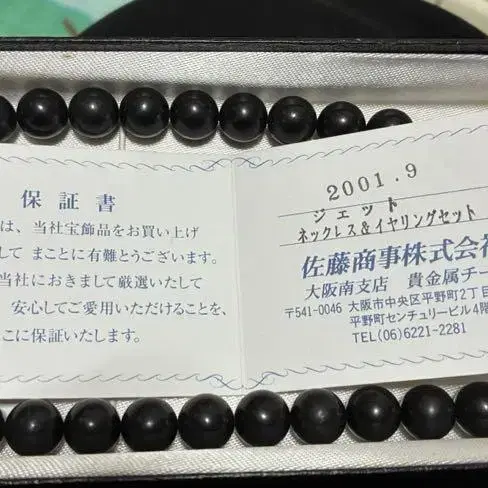 保証書
は、当社宝飾品をお買い上げ
して まことに有難とうございます。
当社におきまして厳選いたして
安心してご愛用いただけることを、
こに保証いたします。
2001.9
ジェット
ネックレス&イヤリングセット
佐藤商事株式会社
大阪南支店 貴金属チー
〒541-0046 大阪市中央区平野町2丁目
平野町センチュリービル4階
TEL(06)6221-2281